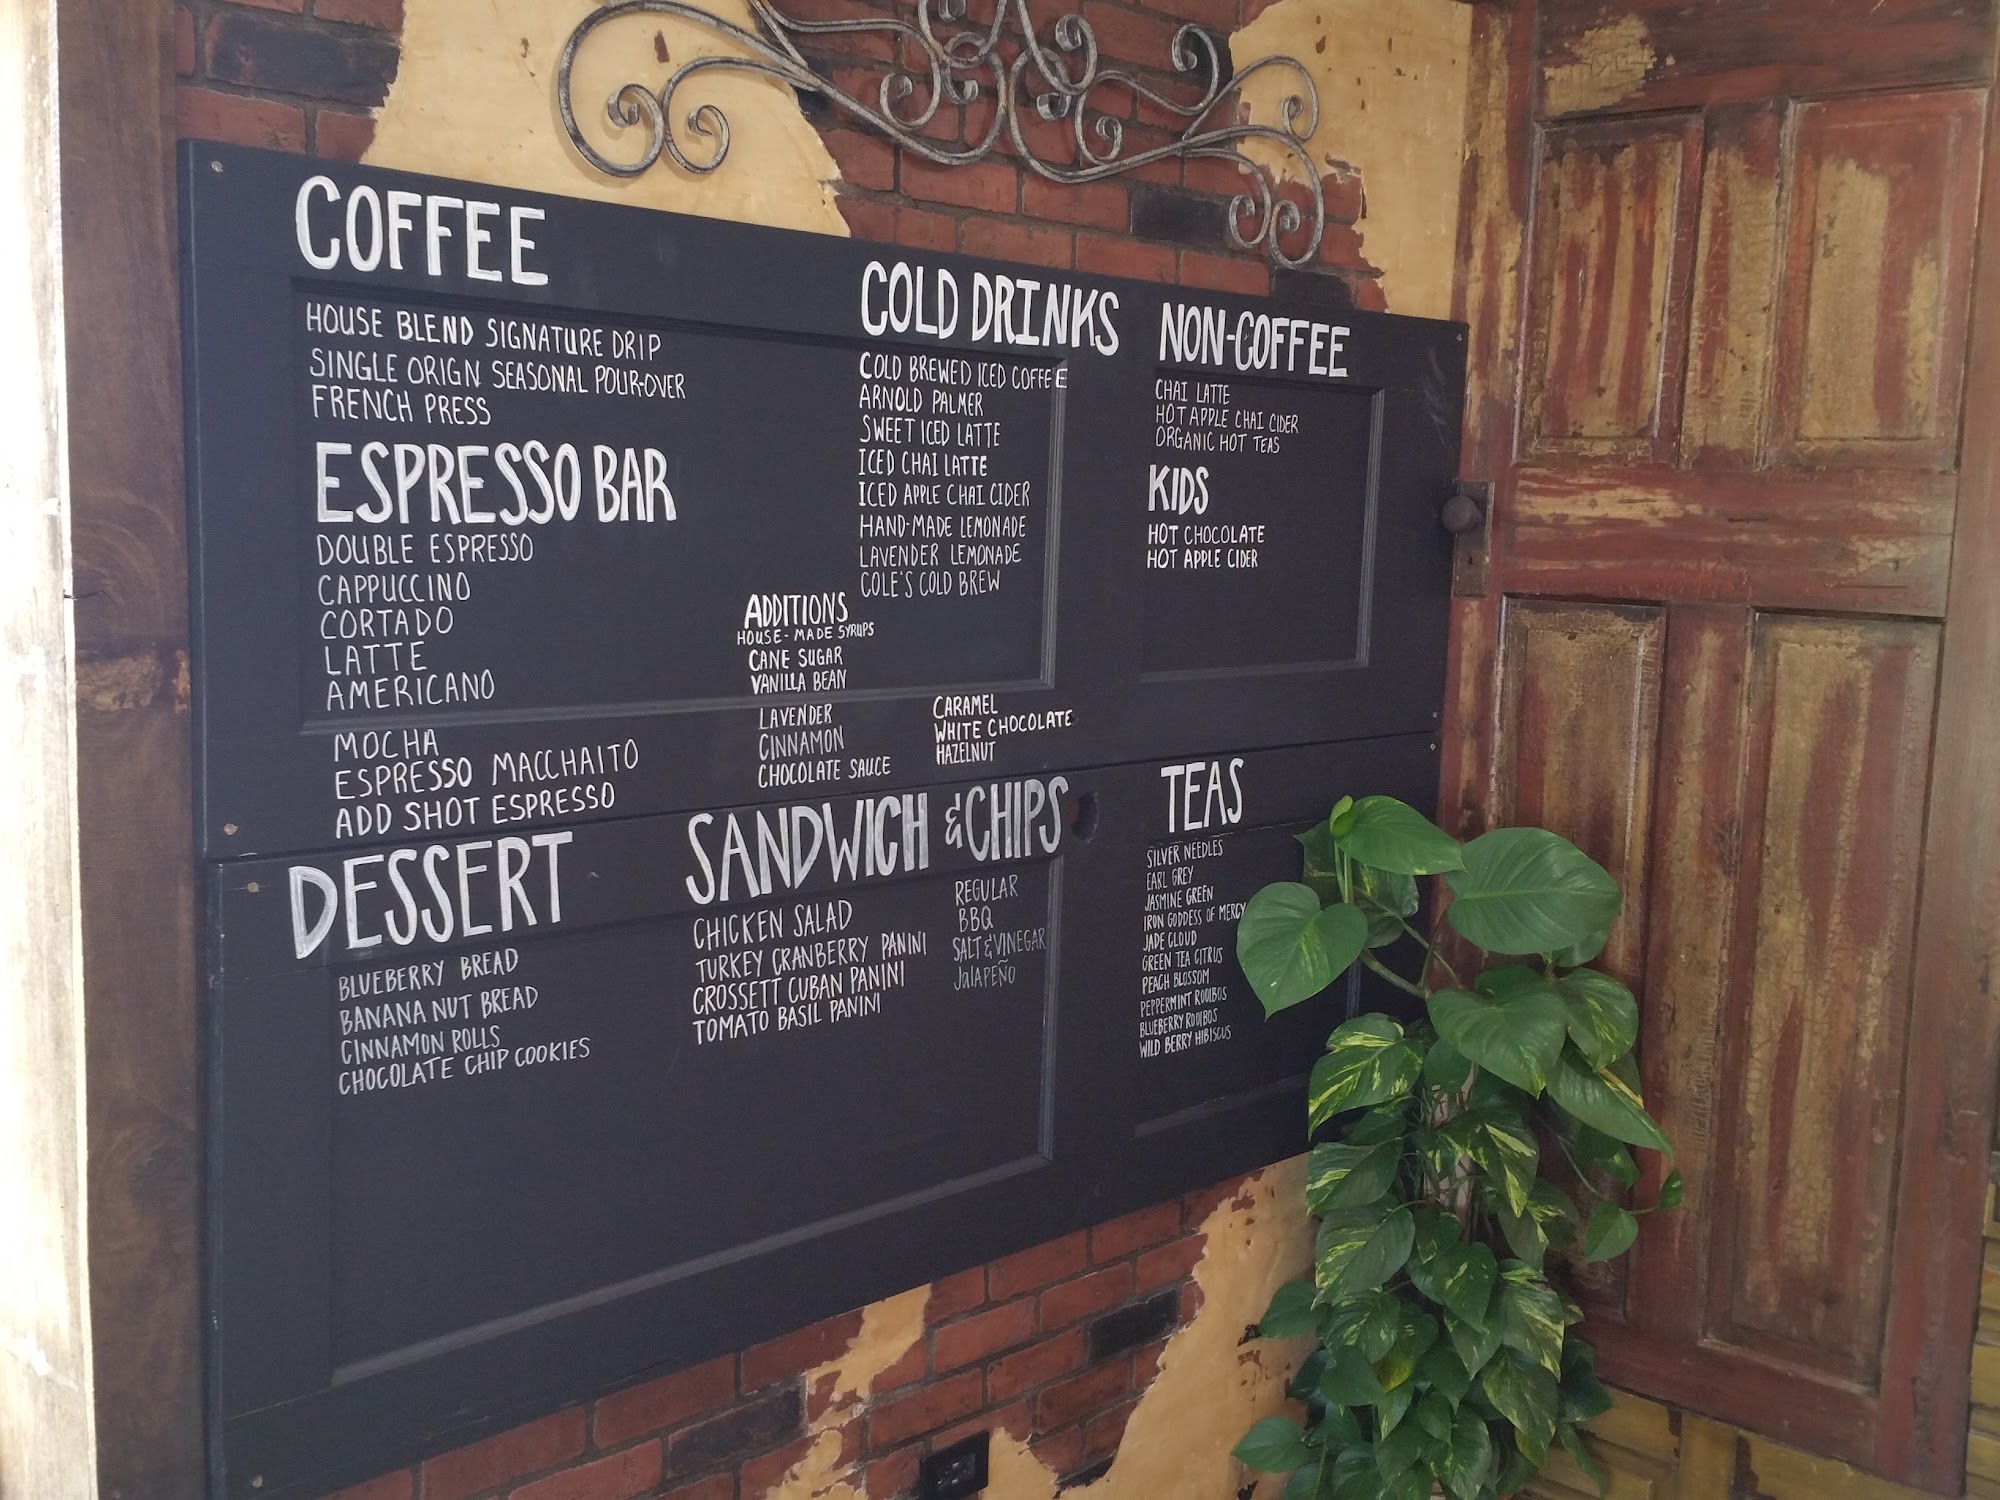 COFFEE
HOUSE BLEND SIGNATURE DRIP
SINGLE ORIGN SEASONAL POUR-OVER
FRENCH PRESS
ESPRESSO BAR
DOUBLE ESPRESSO
CAPPUCCINO
CORTADO
LATTE
AMERICANO
MOCHA
ESPRESSO MACCHAITO
ADD SHOT ESPRESSO
COLD DRINKS
COLD BREWED ICED COFFEE
ARNOLD PALMER
SWEET ICED LATTE
ICED CHAI LATTE
ICED APPLE CHAI CIDER
HAND-MADE LEMONADE
LAVENDER LEMONADE
COLE'S COLD BREW
ADDITIONS
HOUSE-MADE SYRUPS
CANE SUGAR
VANILLA BEAN
LAVENDER
CINNAMON
CHOCOLATE SAUCE
CARAMEL
WHITE CHOCOLATE
HAZELNUT
NON-COFFEE
CHAI LATTE
HOT APPLE CHAI CIDER
ORGANIC HOT TEAS
KIDS
HOT CHOCOLATE
HOT APPLE CIDER
DESSERT
BLUEBERRY BREAD
BANANA NUT BREAD
CINNAMON ROLLS
CHOCOLATE CHIP COOKIES
SANDWICH & CHIPS
CHICKEN SALAD
TURKEY CRANBERRY PANINI
CROSSETT CUBAN PANINI
TOMATO BASIL PANINI
REGULAR
BBQ
SALT & VINEGAR
JalAPEÑO
TEAS
SILVER NEEDLES
EARL GREY
JASMINE GREEN
IRON GODDESS OF MERCY
JADE CLOUD
GREEN TEA CITRUS
PEACH BLOSSOM
PEPPERMINT ROOIBOS
BLUEBERRY ROOIBOS
WILD BERRY HIBISCUS